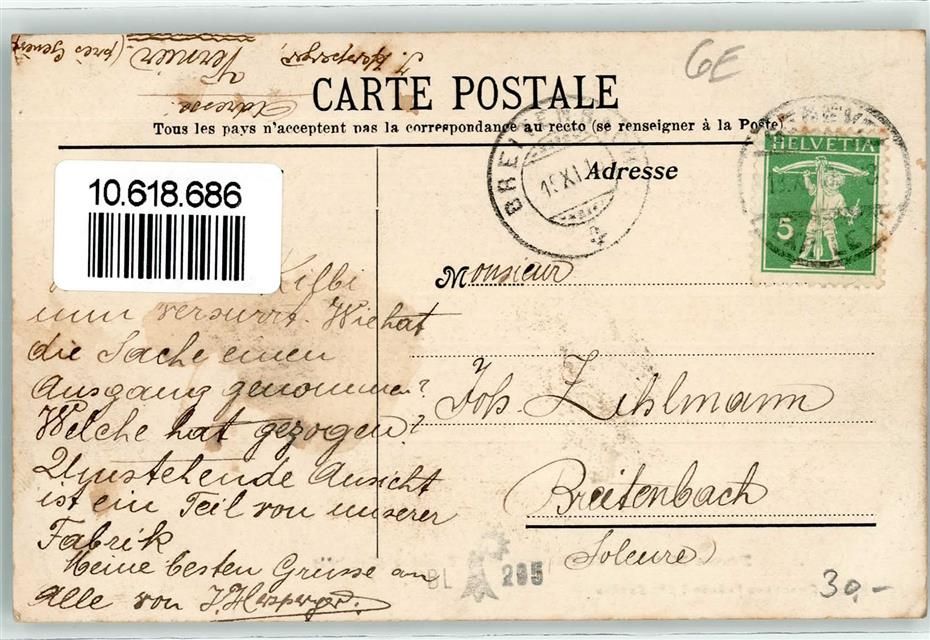 6E
J. Hersperger
Vernier (près Genève)
Adresse
CARTE POSTALE
Tous les pays n'acceptent pas la correspondance au recto (se renseigner à la Poste)
BREITENBACH
HELVETIA
5
Adresse
10.618.686
Monsieur
Joh. Zihlmann
Breitenbach
(Soleure)
Kilbi
nun versurrt. Wie hat
die Sache einen
Ausgang genommen?
Welche hat gezogen?
Umstehende Ansicht
ist ein Teil von unserer
Fabrik
Meine besten Grüsse an
Alle von J. Hersperger.
BL 295
30,-